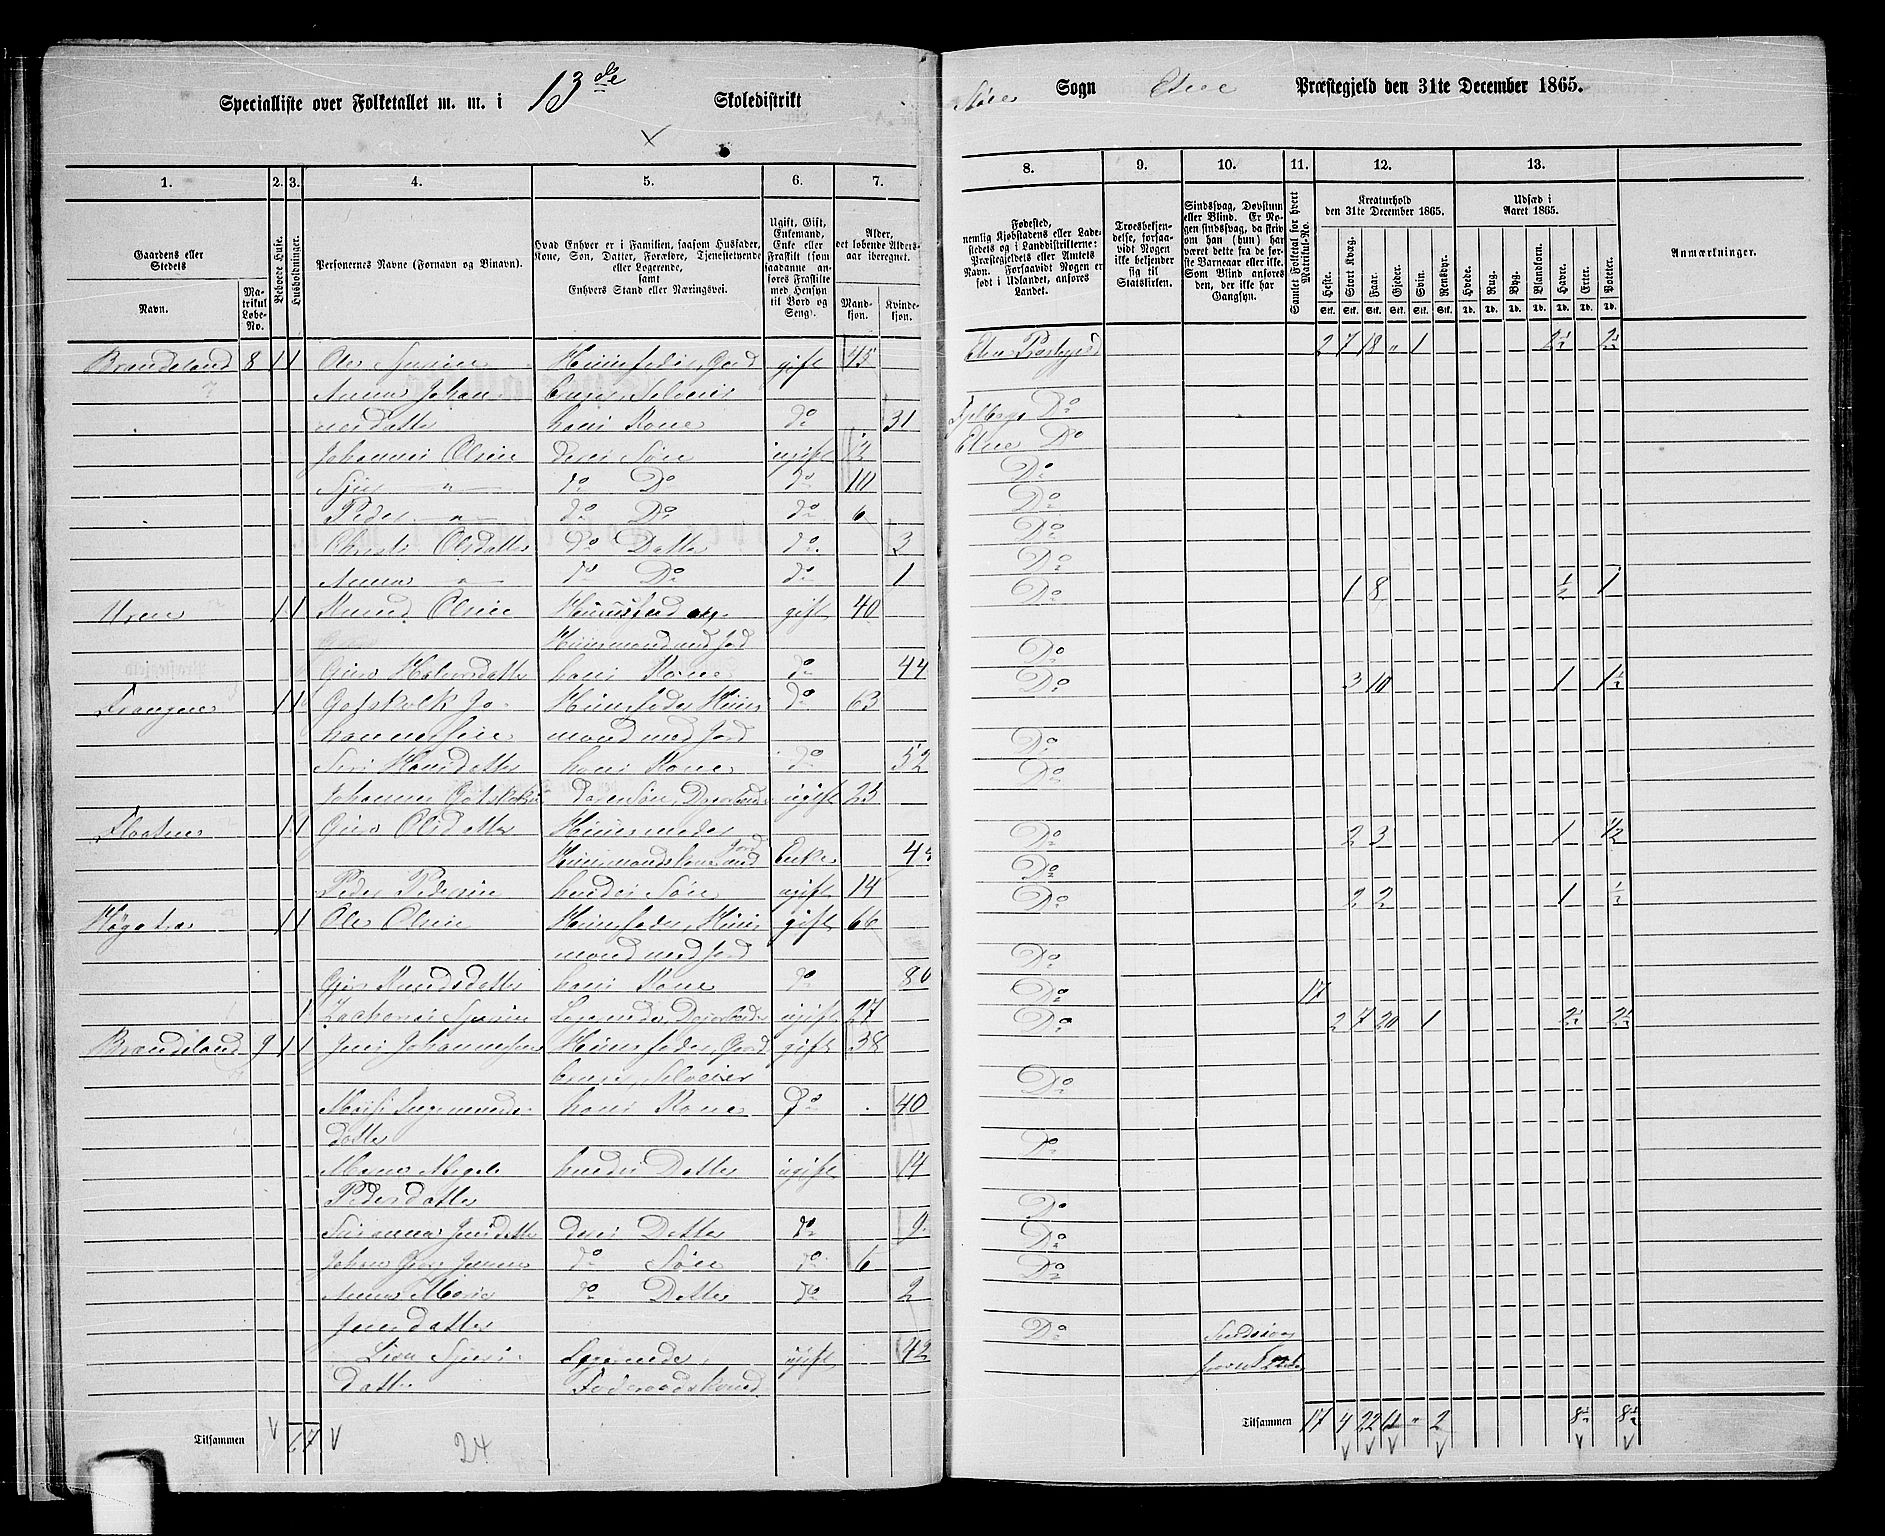 Specialliste over Folketallet m. m. i 13de Skoledistrikt
Støle Sogn Etne Præstegjeld den 31te December 1865.
1. 2. 3. 4. 5. 6. 7.
8. 9. 10. 11. 12. 13.
Gaardens eller Stedets
Navn.
Matrikul Løbe-No.
Beboede Huse.
Husholdninger.
Personernes Navne (Fornavn og Binavn).
Hvad Enhver er i Familien, saasom Husfader, Kone, Søn, Datter, Forældre, Tjenestetyende eller Logerende, samt Enhvers Stand eller Næringsvei.
Ugift, Gift, Enkemand, Enke eller Fraskilt (som saadanne anføres Fraskilte med Hensyn til Bord og Seng).
Alder, det løbende Aldersaar iberegnet.
Mandkjøn. Kvindekjøn.
Fødested, nemlig Kjøbstadens eller Ladestedets og i Landdistrikterne: Præstegjeldets eller Amtets Navn. Forsaavidt Nogen er født i Udlandet, anføres Landet.
Troesbekjendelse, forsaavidt Nogen ikke bekjender sig til Statskirken.
Sindssvag, Døvstum eller Blind. Er Nogen sindssvag, da skriv om han (hun) har været dette fra de første Barneaar eller ikke. Som Blind anføres den, der ikke har Gangsyn.
Samlet Folketal for hvert Matrikul-No.
Kreaturhold den 31te December 1865.
Heste. Stort Kvæg. Faar. Gjeder. Svin. Rensdyr.
Udsæd i Aaret 1865.
Hvede. Rug. Byg. Blandkorn. Havre. Erter. Poteter.
Anmærkninger.
Brendeland 8 1 1 Ole Sjursen Huusfader, Gard gift 45 Etne Præstegjeld 2 7 18 " 1 2½ 2½
Anna Johan bruger, Selveier
nesdatter hans Kone do 31 Fjelberg Do
Johannes Olsen deres Søn ugift 12 Etne Do
Sjur " do Do do 10 Do
Peder " do Do do 6 Do
Christi Olsdatter do Datter do 3 Do
Anna " do Do do 1 Do
Uren 1 1 Knud Olsen Huusfader gift 40 Do 1 8 ½ 1
Huusmand med Jord
Guro Halvorsdatter hans Kone do 44 Do
1 1 Gotskalk Jo Huusfader Huus do 63 Do 3 10 1 1½
hannessen mand med Jord
Siri Hansdatter hans Kone do 52 Do
Johannes Gotskalks deres Søn, Dagarbeider ugift 25 Do
Flaaten 1 1 Guro Olsdatter Huusmoder
Huusmandskone med Jord Enke 44 Do 2 3 1 ½
Peder Pedersen hendes Søn ugift 14 Do
1 1 Ole Olsen Huusfader, Huus gift 66 Do 2 2 1 ½
mand med Jord
Knudsdatter hans Kone do 80 Do
1 Zacharias Sjursen Logerende, Dagarbeider ugift 27 Do 17
Brendeland 9 1 1 Jens Johannessen Huusfader, Gard gift 38 Do 2 7 20 1 2½ 2½
bruger, Selveier
Ingemunds hans Kone Do 40 Do
datter
hendes Datter ugift 14 Do
Pedersdatter
Susanna Jensdatter deres Datter do 9 Do
Johan Jensen do Søn do 6 Do
Anna Maria do Datter do 2 Do
Jensdatter
Sjurs Logerende, ugift 42 Do Sindssvag
datter Foderaadskone
Tilsammen 6 7 24
Tilsammen 17 4 22 61 " 2 8½ 8½